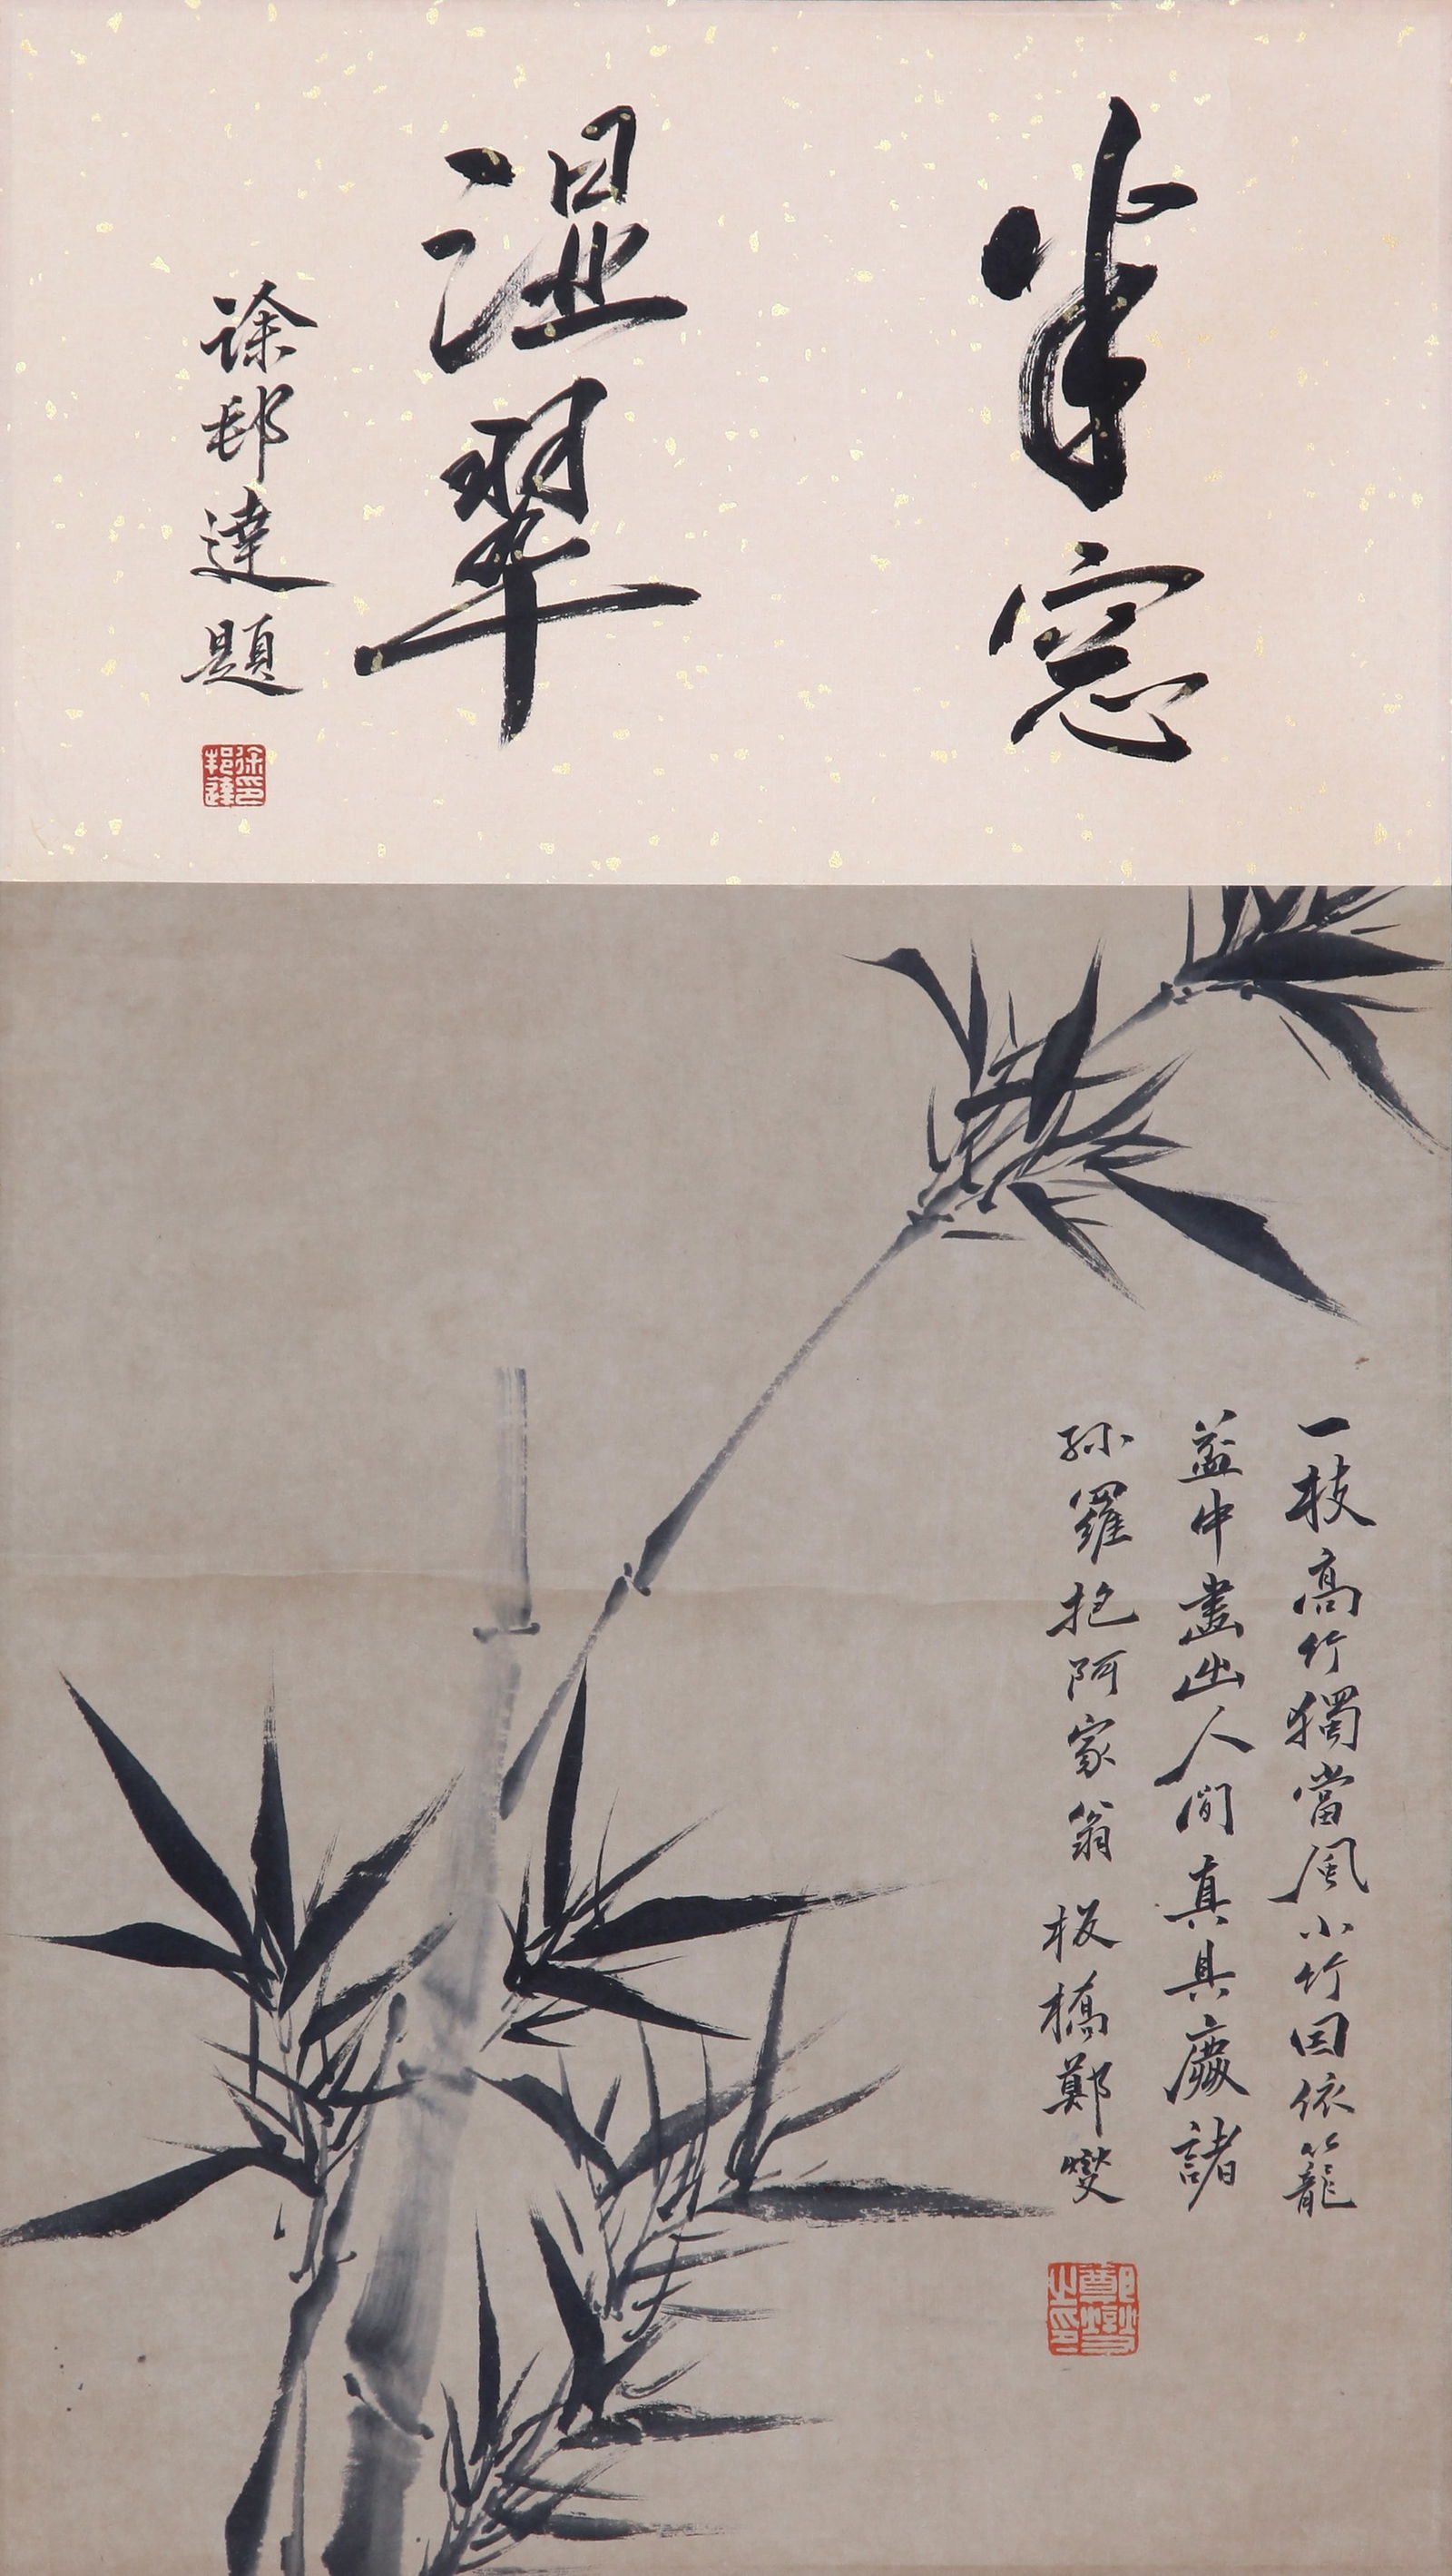 半窓
湿翠
徐邦達題
徐印邦達
一枝高竹獨當風小竹因依籠
蓋中畫出人間真具慶諸
孫羅抱阿家翁 板橋鄭燮
鄭燮之印